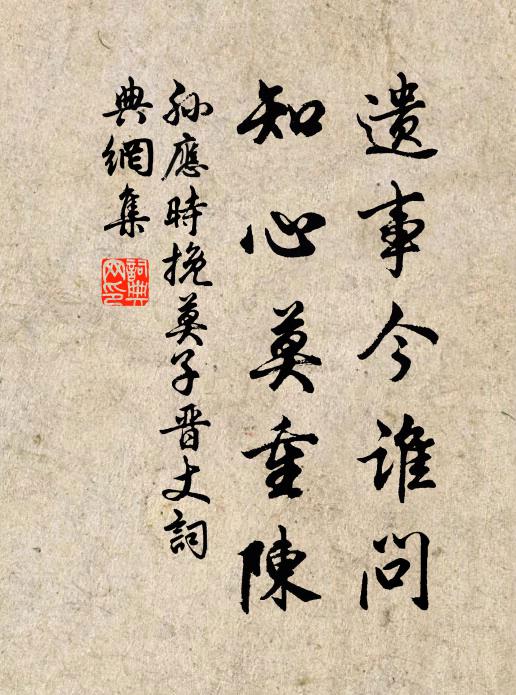 遺事今誰問
知心莫重陳
孙應時挽莫子晋丈詞
典網集
詞典
网印